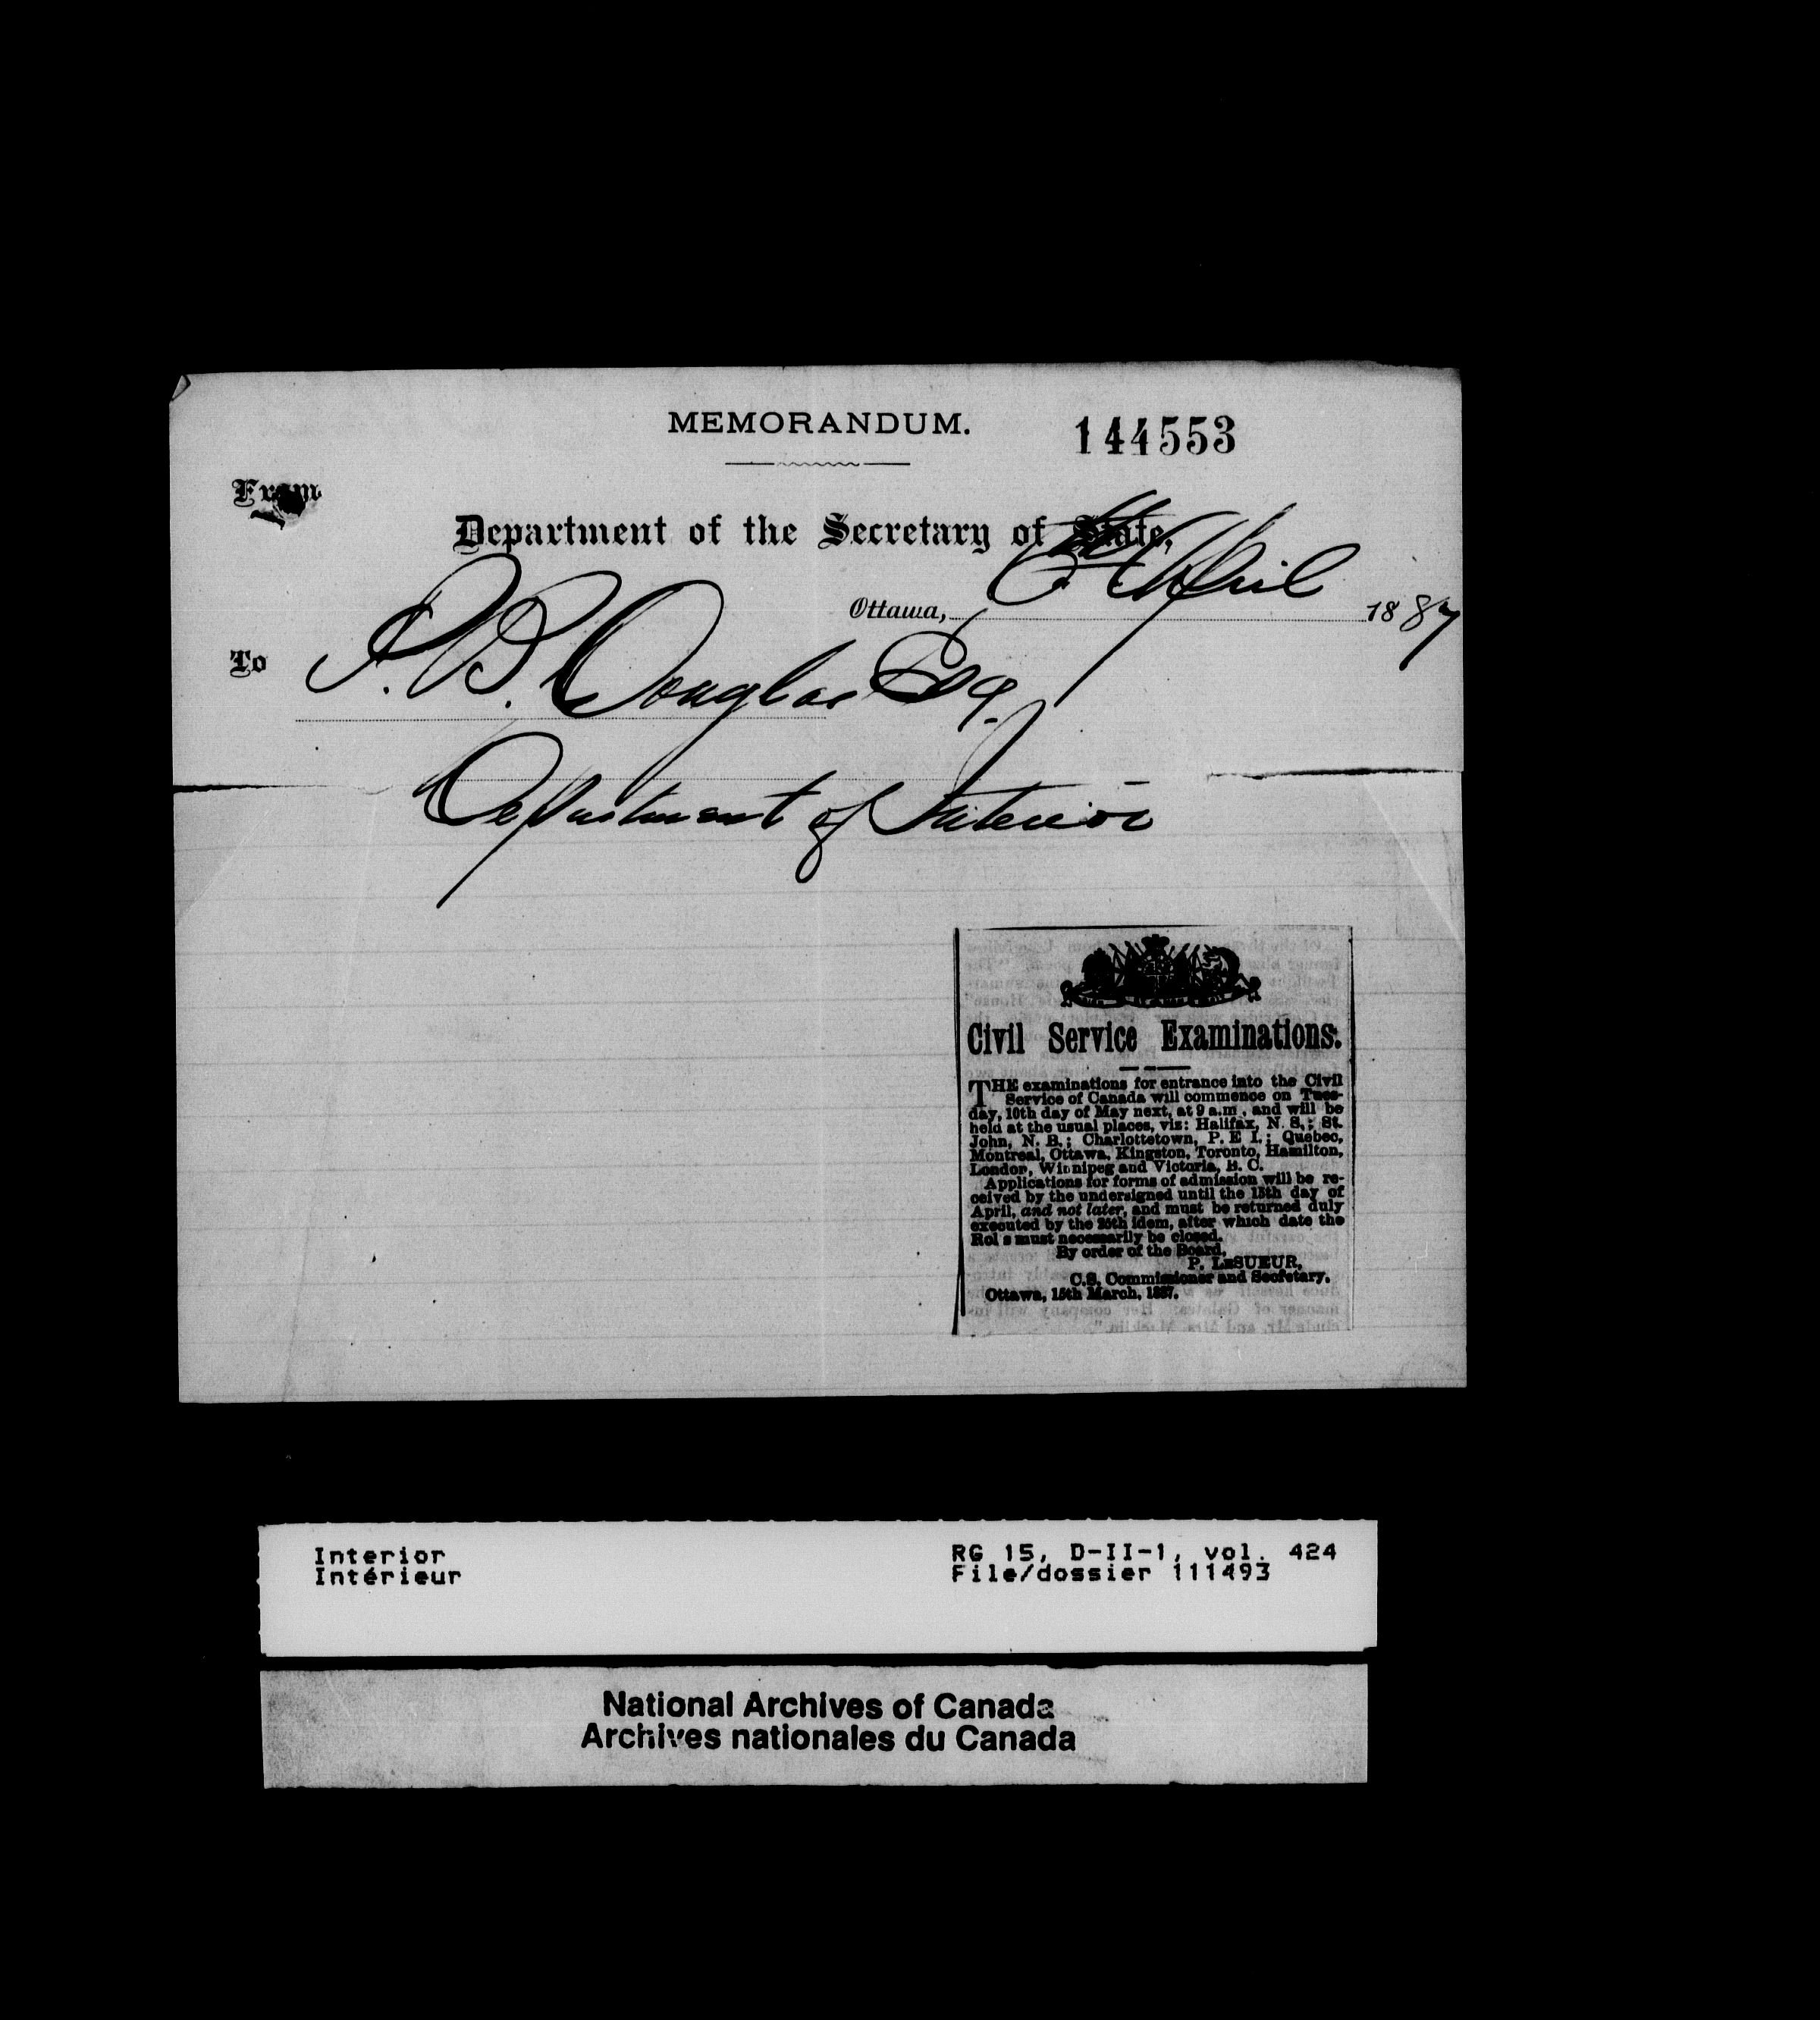 MEMORANDUM.
144553
From
Department of the Secretary of State,
Ottawa, 6th April 1887
To P. B. Douglas Esq.
Department of Interior
Civil Service Examinations.
THE examinations for entrance into the Civil
Service of Canada will commence on Tues-
day, 10th day of May next, at 9 a.m., and will be
held at the usual places, viz: Halifax, N. S.; St.
John, N. B.; Charlottetown, P. E I.; Quebec,
Montreal, Ottawa, Kingston, Toronto, Hamilton,
London, Winnipeg and Victoria, B. C.
Applications for forms of admission will be re-
ceived by the undersigned until the 15th day of
April, and not later, and must be returned duly
executed by the 25th idem, after which date the
Rol s must necessarily be closed.
By order of the Board,
P. LESUEUR,
C.S. Commissioner and Secretary.
Ottawa, 15th March, 1887.
Interior
Intérieur
RG 15, D-II-1, vol. 424
File/dossier 111493
National Archives of Canada
Archives nationales du Canada